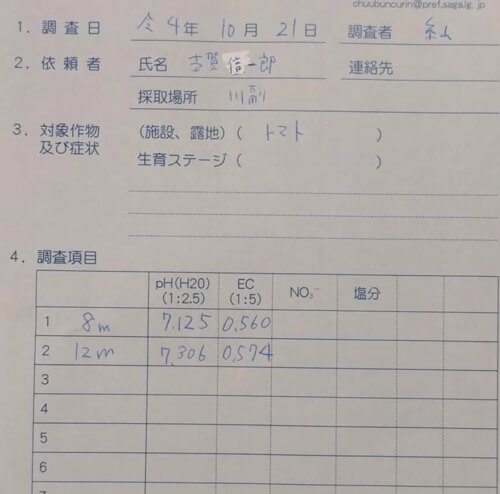 chuubunourin@pref.saga.lg.jp
1. 調査日 令4年 10月 21日 調査者
2. 依頼者 氏名 古賀信一郎 連絡先
採取場所 川副
3. 対象作物 (施設、露地)( トマト )
及び症状 生育ステージ( )
4. 調査項目
pH(H20) EC NO₃⁻ 塩分
(1:2.5) (1:5)
1 8m 7.125 0.560
2 12m 7.306 0.574
3
4
5
6